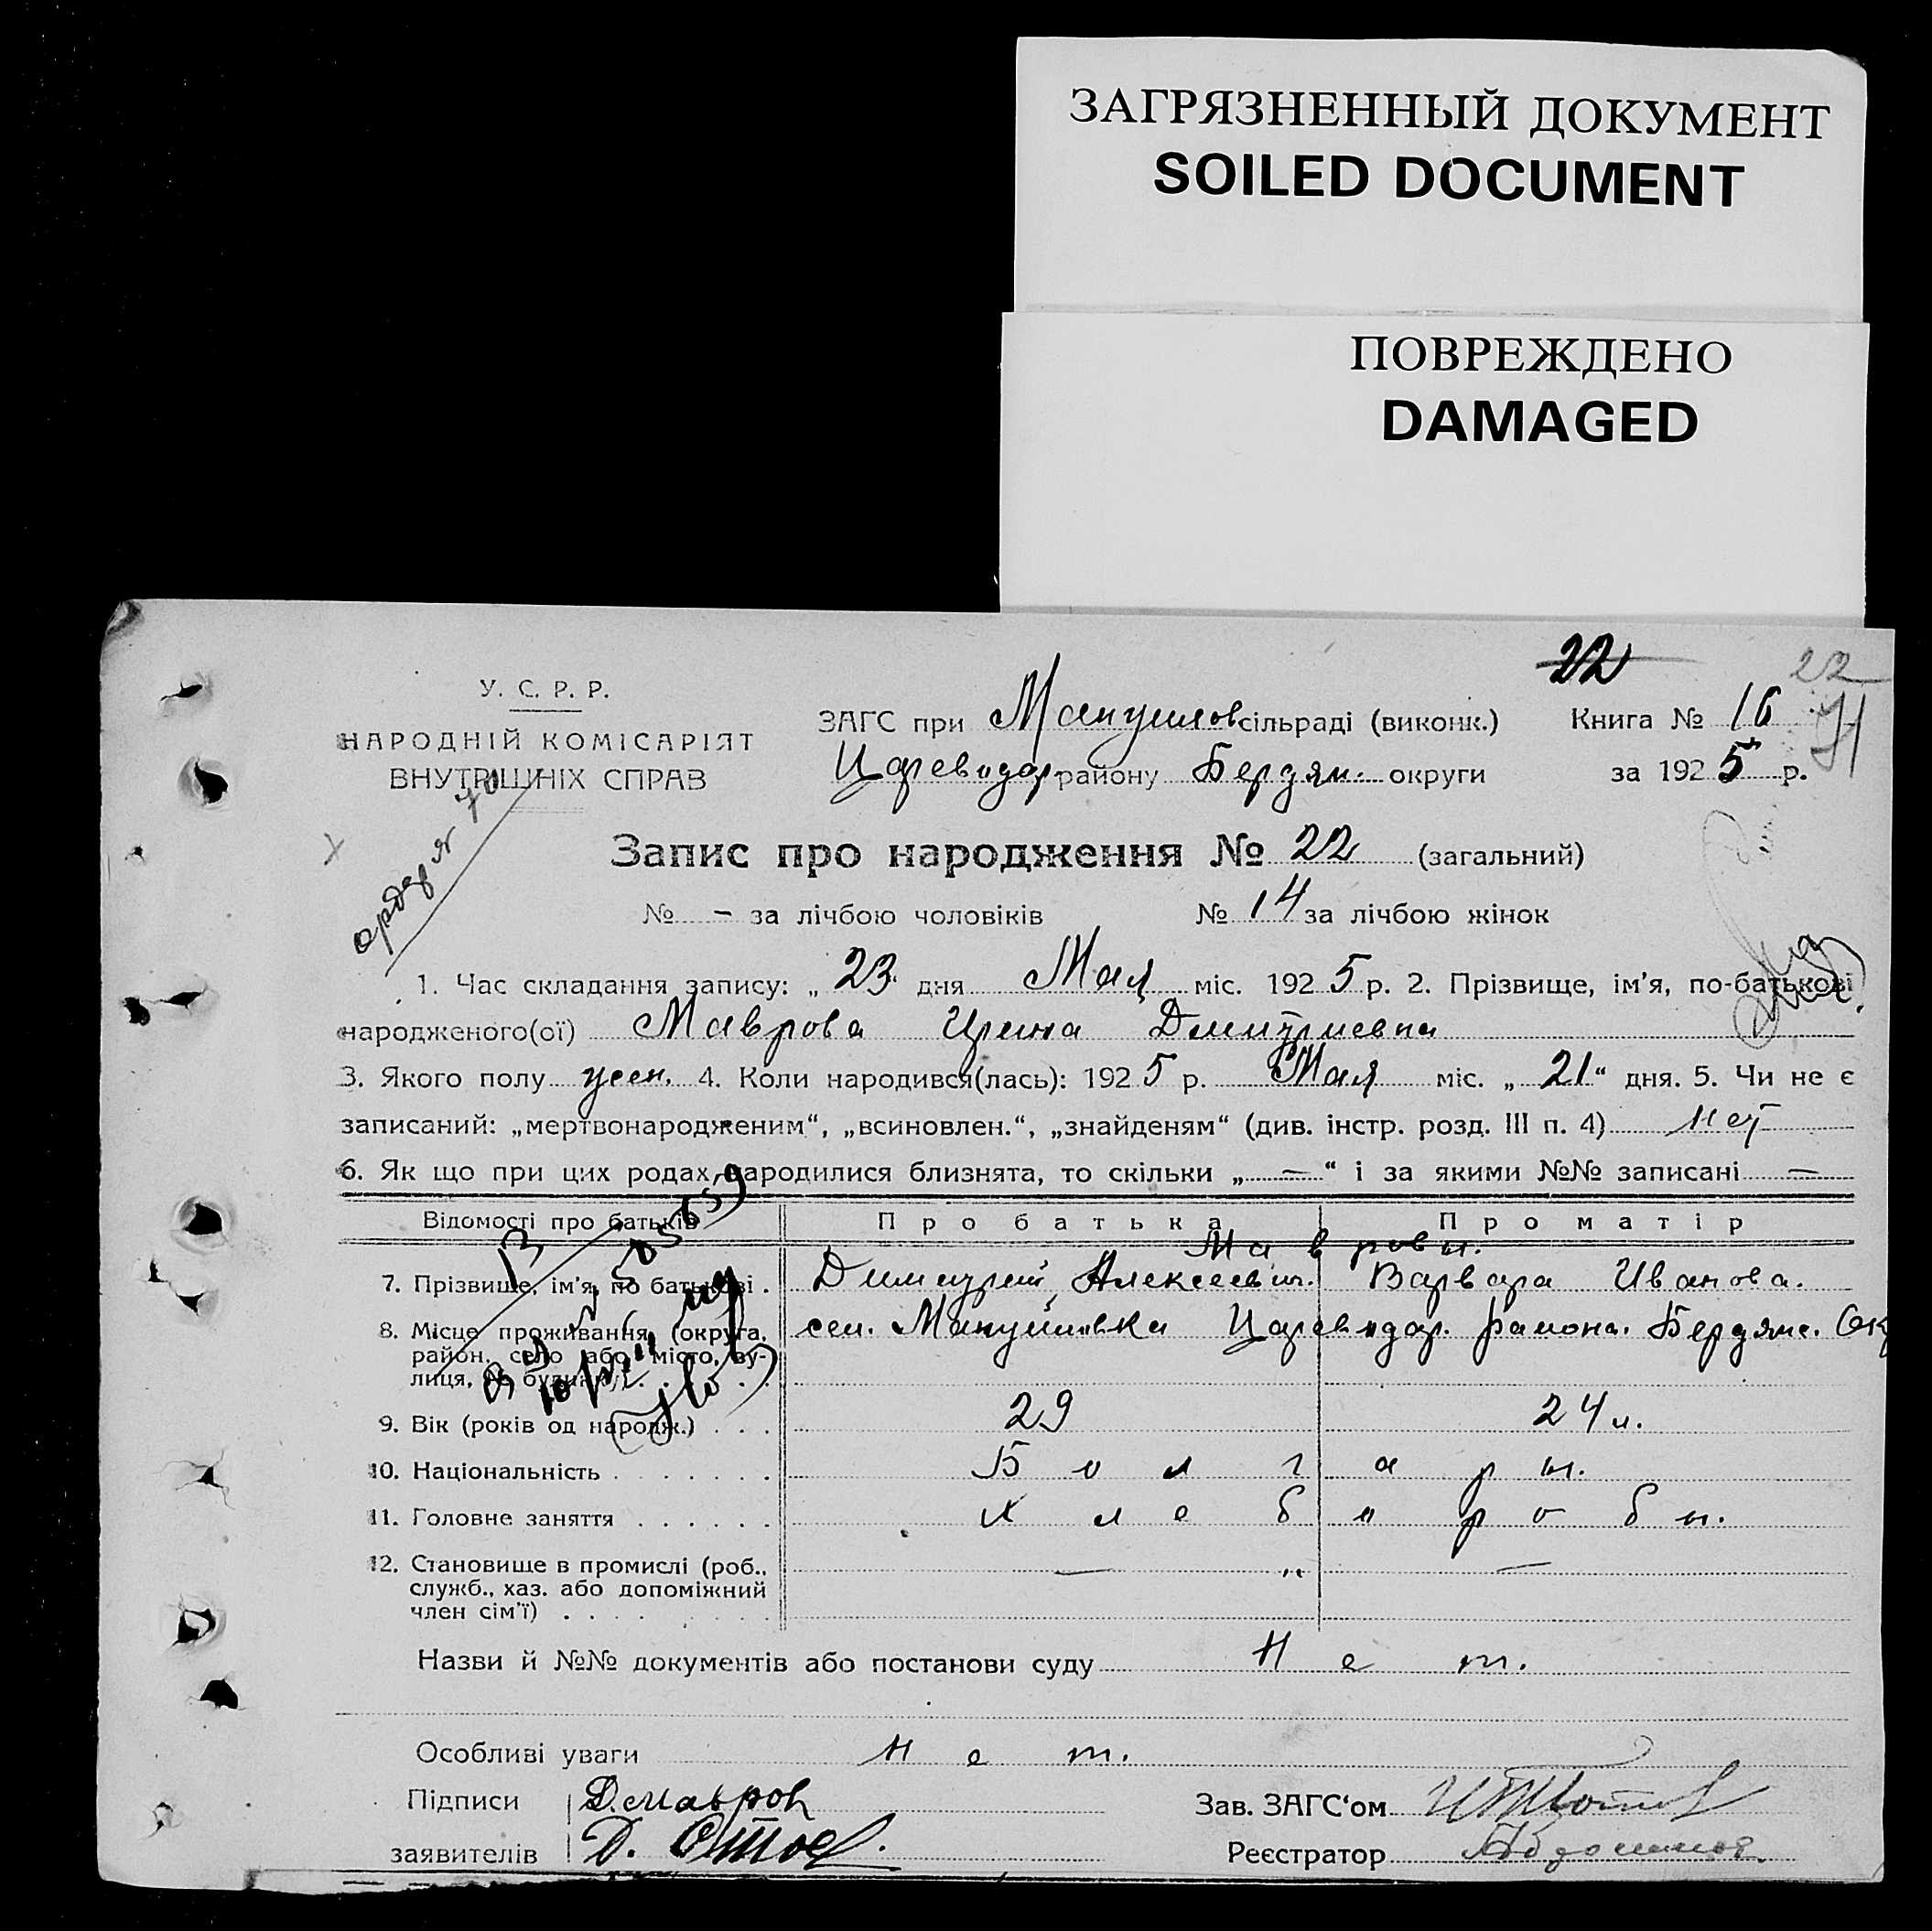 ЗАГРЯЗНЕННЫЙ ДОКУМЕНТ
SOILED DOCUMENT
ПОВРЕЖДЕНО
DAMAGED
22 22
У. С. Р. Р.
НАРОДНІЙ КОМІСАРІЯТ
ВНУТРІШНІХ СПРАВ
ЗАГС при Мануиловсільраді (виконк.) Книга № 16
Цареводар. району Бердян. округи за 1925 р.
Запис про народження № 22 (загальний)
№ – за лічбою чоловіків № 14 за лічбою жінок
1. Час складання запису: „ 23 дня Мая міс. 1925 р. 2. Прізвище, ім'я, по-батькові
народженого(ої) Маврова Ирина Дмитриевна
3. Якого полу жен. 4. Коли народився(лась): 1925 р. Мая міс. „ 21 “ дня. 5. Чи не є
записаний: „мертвонародженим“, „всиновлен.“, „знайденям“ (див. інстр. розд. III п. 4) нет
6. Як що при цих родах народилися близнята, то скільки „ — “ і за якими №№ записані —
Відомості про батьків Про батька Про матір
Мавровы.
7. Прізвище, ім'я, по батькові . Димитрий Алексеевич. Варвара Иванова.
8. Місце проживання (округа, сел. Мануиловка Цареводар. района. Бердянс. Ок
район, село або місто, ву-
лиця, № будинку) . . . . .
9. Вік (років од народж.) . . . 29 24 л.
10. Національність . . . . . . . Болгары.
11. Головне заняття . . . . . . Хлеборобы.
12. Становище в промислі (роб., — „ —
служб., хаз. або допоміжний
член сім'ї) . . . . . . . . .
Назви й №№ документів або постанови суду Нет.
Особливі уваги нет.
Підписи Д. Мавров Зав. ЗАГС'ом
заявителів Д. Реєстратор